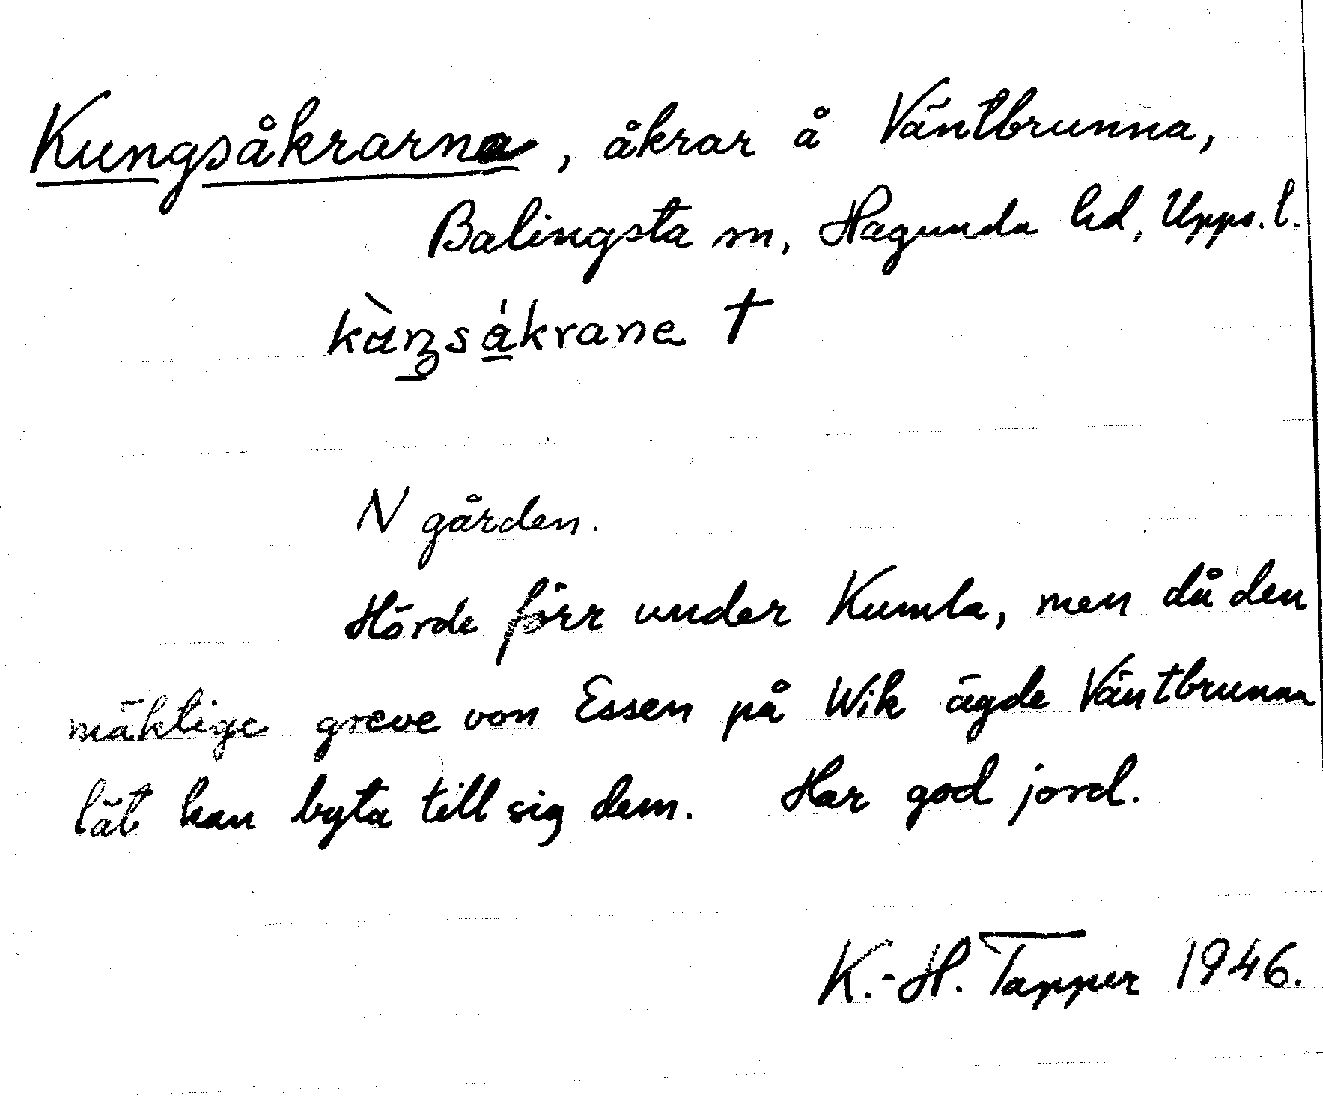 Kungsåkrarna, åkrar å Väntbrunna,
Balingsta sn, Hagunda hd, Upps. l.
N gården.
Hörde förr under Kumla, men då den
mäktige greve von Essen på Wik ägde Väntbrunna
lät han byta till sig dem. Har god jord.
K.-H. Tapper 1946.